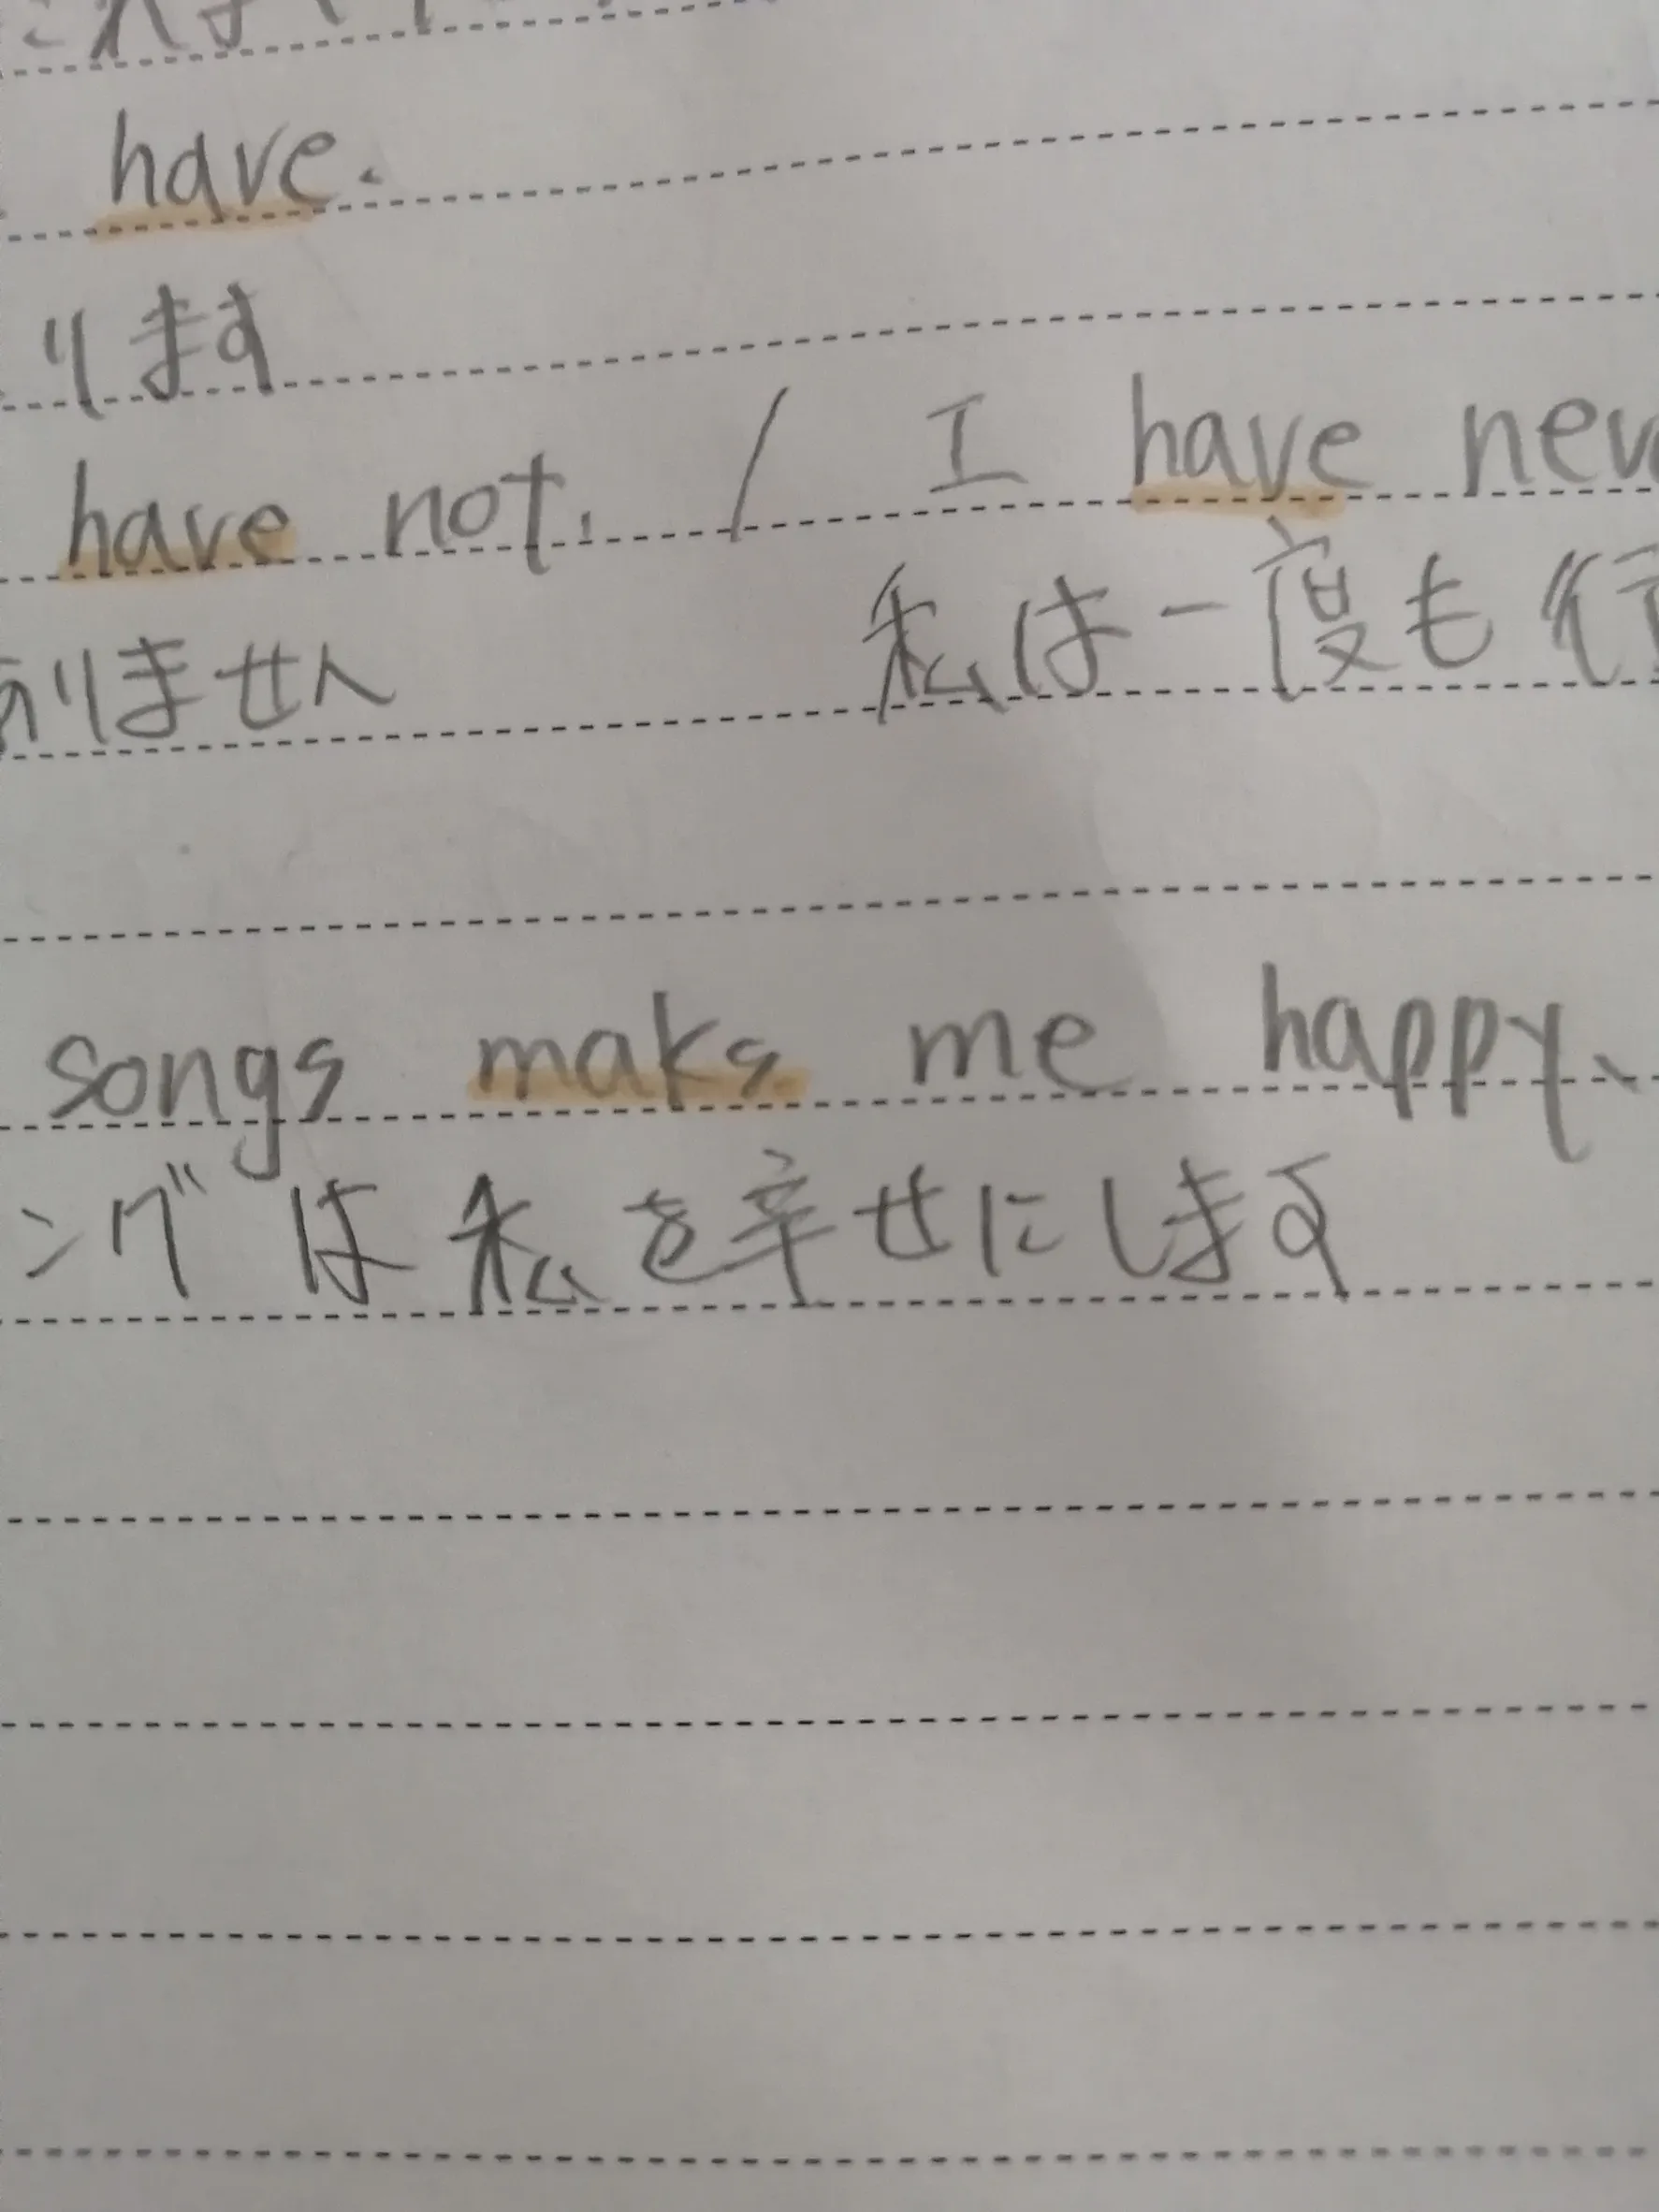 have.
ります
have not. / I have nev
ありません 私は一度も行
songs maks me happy.
ングは私を幸せにします